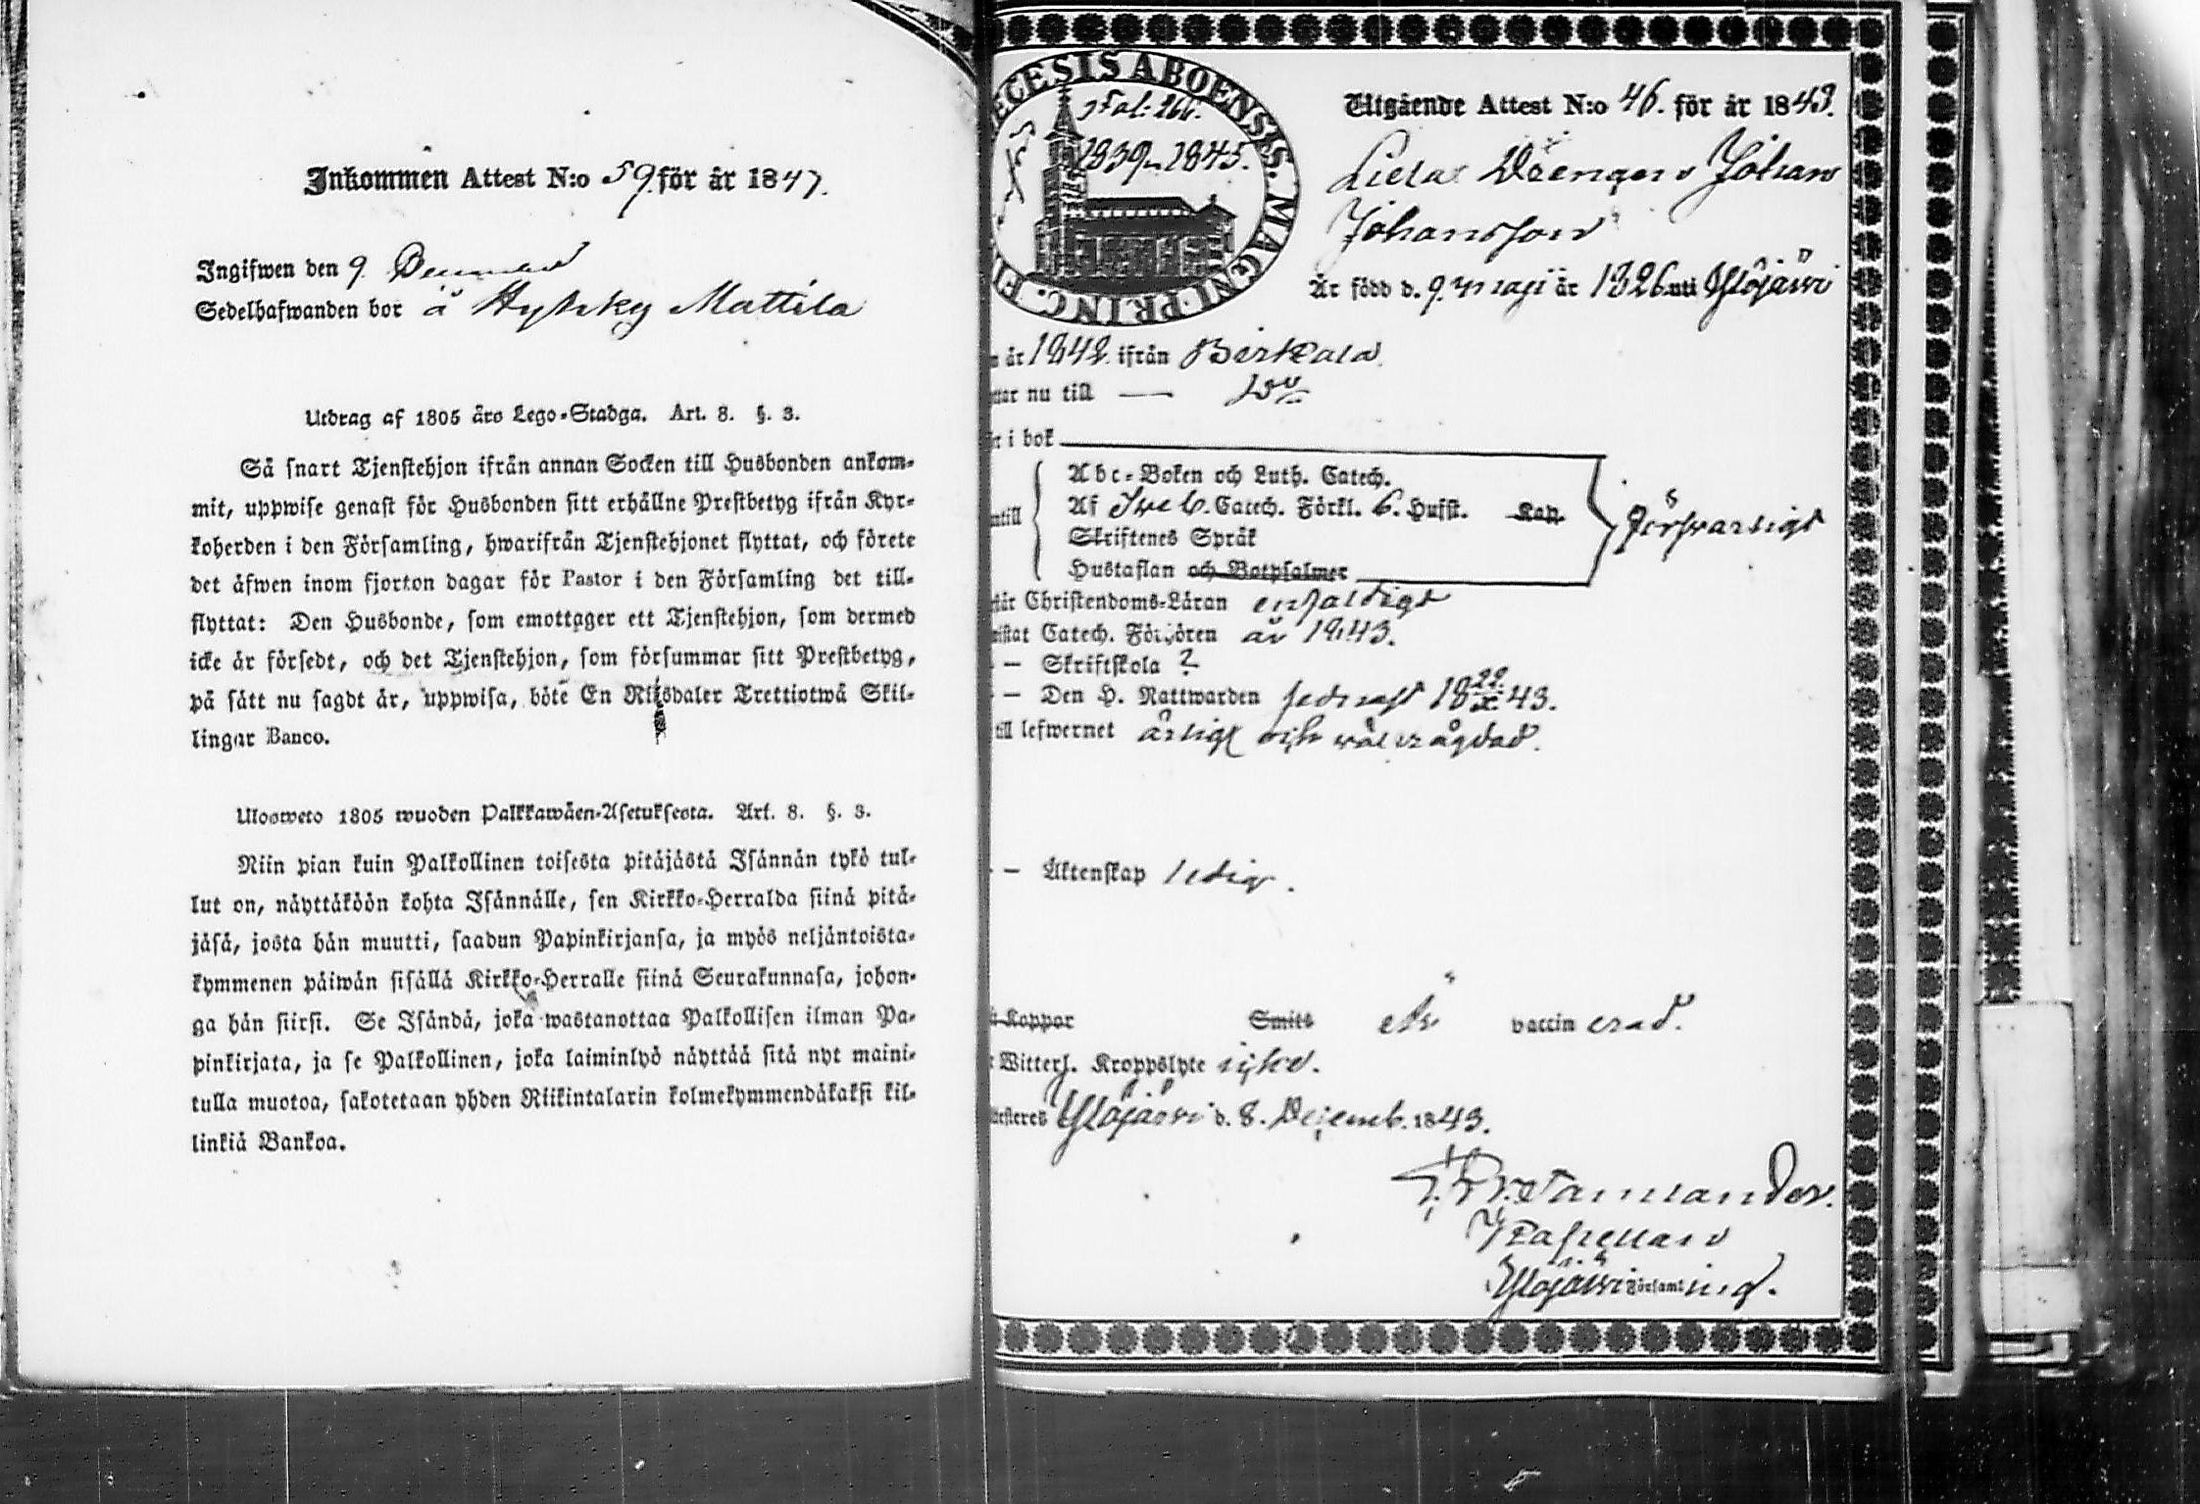 Inkommen Attest N:o 59. för år 1847.
Ingifwen den 9.
Sedelhafwanden bor å Hyhky Mattila
Utdrag af 1805 års Lego-Stadga. Art. 8. §. 3.
Så snart Tjenstehjon ifrån annan Socken till Husbonden ankom-
mit, uppwise genast för Husbonden sitt erhållne Prestbetyg ifrån Kyr-
koherden i den Församling, hwarifrån Tjenstehjonet flyttat, och förete
det äfwen inom fjorton dagar för Pastor i den Församling det till-
flyttat: Den Husbonde, som emottager ett Tjenstehjon, som dermed
icke är försedt, och det Tjenstehjon, som försummar sitt Prestbetyg,
på sätt nu sagdt är, uppwisa, böte En Riksdaler Trettiotwå Skil-
lingar Banco.
Ulosweto 1805 wuoden Palkkawäen-Asetuksesta. Art. 8. §. 3.
Niin pian kuin Palkollinen toisesta pitäjästä Isännän tykö tul-
lut on, näyttäköön kohta Isännälle, sen Kirkko-Herralda siinä pitä-
jäsä, josta hän muutti, saadun Papinkirjansa, ja myös neljäntoista-
kymmenen päiwän sisällä Kirkko-Herralle siinä Seurakunnasa, johon-
ga hän siirsi. Se Isändä, joka wastanottaa Palkollisen ilman Pa-
pinkirjata, ja se Palkollinen, joka laiminlyö näyttää sitä nyt maini-
tulla muotoa, sakotetaan yhden Riikintalarin kolmekymmendäkaksi kil-
linkiä Bankoa.
ECESIS ABOENSIS. MAGNI PRINC. FI
Fol: 266.
1839–1845.
Utgående Attest N:o 46. för år 1843.
Liela Drengen Johan
Johansson
Är född d. 9. Maji år 1826 uti Ylöjärvi
år 1842. ifrån Birkala
nu till —
i bok
Abc-Boken och Luth. Catech.
Af Sveb. Catech. Förkl. 6. Hufst. Kap.
Skriftenes Språk
Hustaflan och Botpsalmer
försvarligt
Christendoms-Läran enfaldigt
Catech. Förhören år 1843.
— Skriftskola ?
— Den H. Nattwarden sednast 18 22/X 43.
till lefwernet ärligt och välfrägdad.
— Äktenskap ledig.
Koppor Smits är vaccin erad.
Witterl. Kroppslyte icke.
Ylöjärvi d. 8. Decemb. 1843.
Tammlander.
Kapellan
Ylöjärvi Församling.